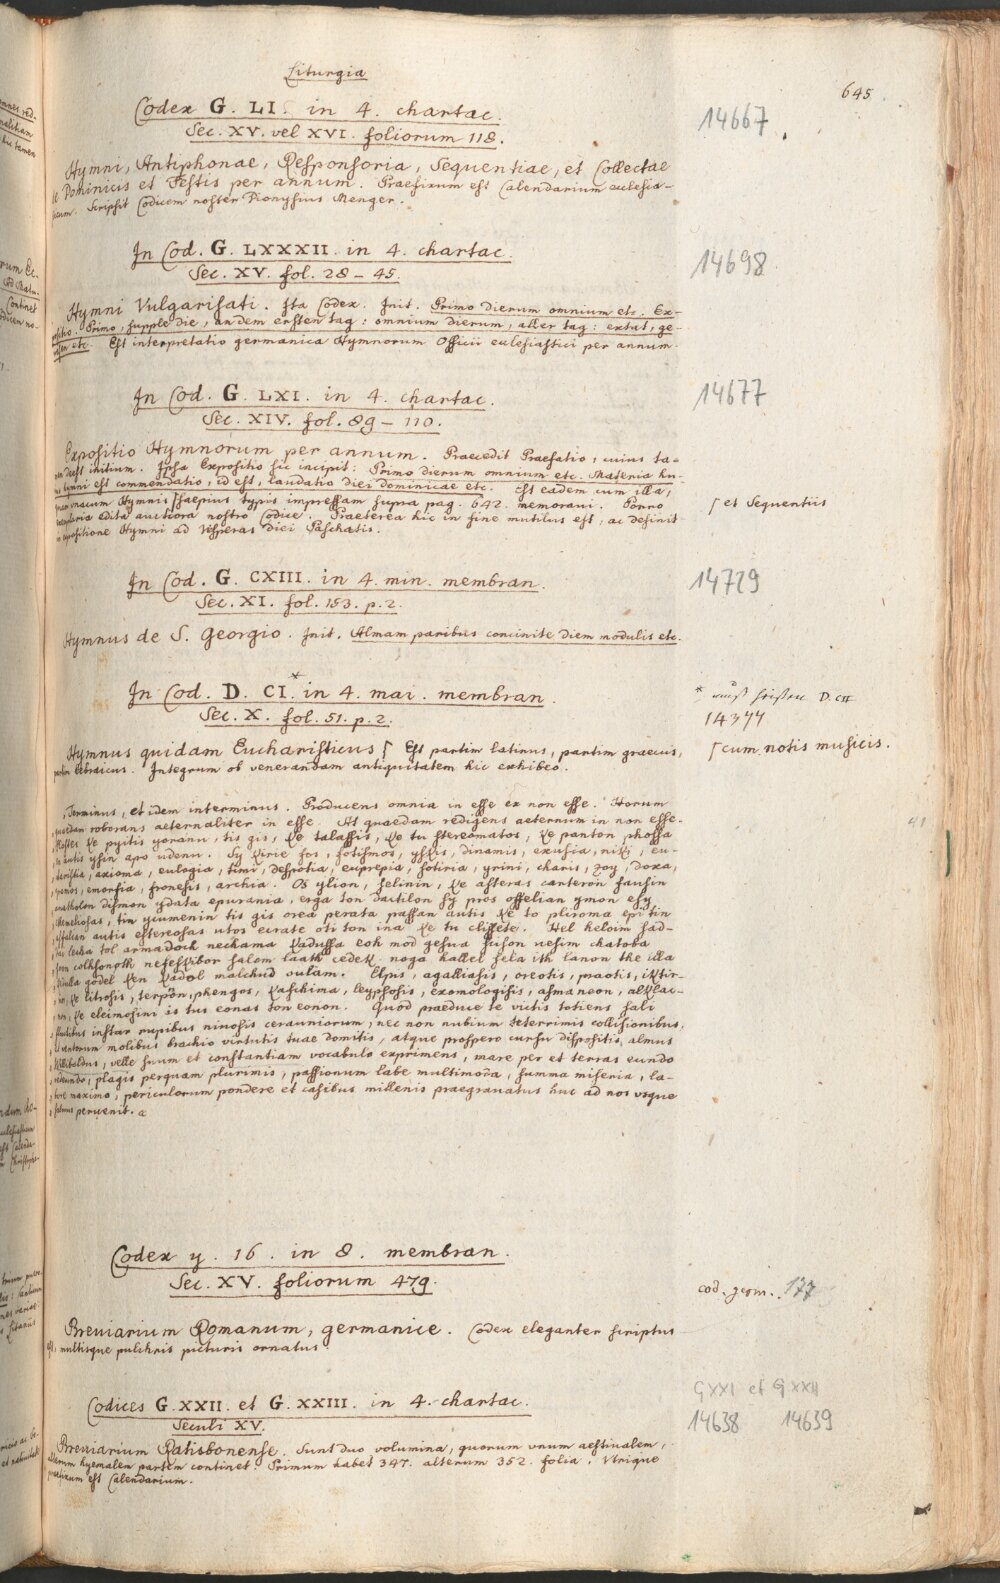 Liturgia
645
Codex G. LI. in 4. chartac.
14667
Sec. XV. vel XVI. foliorum 118.
Hymni, Antiphonae, Responsoria, Sequentiae, et Collectae
de Dominicis et Festis per annum. Praefixum est Calendarium ecclesia-
sticum. Scripsit Codicem noster Dionysius Menger.
In Cod. G. LXXXII. in 4. chartac.
14698
Sec. XV. fol. 28 - 45.
Hymni Vulgarisati. Ita Codex. Init. Primo dierum omnium etc. Ex-
positio. Primo, supple die, an dem ersten tag: omnium dierum, aller tag: extat, ge-
etc. Est interpretatio germanica Hymnorum Officii ecclesiastici per annum.
In Cod. G. LXI. in 4. chartac.
14677
Sec. XIV. fol. 89 - 110.
Expositio Hymnorum per annum. Praecedit Praefatio, cuius ta-
men deest initium. Ipsa Expositio sic incipit: Primo dierum omnium etc. Materia hu-
ius hymni est commendatio, id est, laudatio diei dominicae etc. Est eadem cum illa,
quam Hymnis ⌈ saepius typis impressam supra pag. 642. memoravi. Porro
⌈ et Sequentiis
exemplaria edita auctiora nostro Codice. Praeterea hic in fine mutilus est, ac desinit
in expositione Hymni ad Vesperas diei Paschatis.
In Cod. G. CXIII. in 4. min. membran.
14729
Sec. XI. fol. 153. p. 2.
Hymnus de S. Georgio. Init. Almam paribus concinite diem modulis etc.
In Cod. D. CI.* in 4. mai. membran.
* muß heißen D. CII
Sec. X. fol. 51. p. 2.
14377
Hymnus quidam Eucharisticus ⌈ Est partim latinus, partim graecus,
⌈ cum notis musicis.
partim hebraicus. Integrum ob venerandam antiquitatem hic exhibeo.
Terminus, et idem interminus. Producens omnia in esse ex non esse. Horum
quaedam roborans aeternaliter in esse. At quaedam redigens aeternum in non esse.
ke pyitis yoranu, tis gis, ke talassis, ke tu stereomatos, ke panton phossa
autis ysin apo udenu. Sy kirie fos, fotismos, yskis, dinamis, exusia, niki, eu-
charistia, axioma, eulogia, timi, despotia, euprepia, sotiria, yrini, charis, zoy, doxa,
emorfia, fronesis, archia. Os ylion, selinin, ke asteras canteron fausin
dismon ydata epurania, erga ton dactilon sy pros offelian ymon esy
tin yiumenin tis gis orea perata passan autis ke to pliroma epi tin
autis estereosas utos eirate oti ton ina ke tu clissete. Hel heloim sad-
lecha tol armadock nechama kadussa eoh mod gesua suson nesim chatoba
colhsonoth nefesskibor salom laath cedek. noga hallel sela ith lanon the illa
godel ken kadol malchud oulam. Elpis, agalliasis, oreotis, praotis, iktir-
ke litrosis, terpon, phengos, kaschima, leypsosis, exomologisis, asmaneon, alklac-
ke eleimosini is tus eonas ton eonon. Quod praeduce te victis totiens sali
fluctibus instar rupibus ninosis cerauniorum, nec non nubium teterrimis collisionibus,
et ventorum molibus brachio virtutis tuae domitis, atque prospero cursu dispositis, almus
Willibaldus, velle suum et constantiam vocabulo exprimens, mare per et terras eundo
redeundo, plagis perquam plurimis, passionum labe multimoda, summa miseria, la-
bore maximo, periculorum pondere et casibus millenis praegravatus huc ad nos usque
salvus pervenit. a
Codex y. 16. in 8. membran.
Sec. XV. foliorum 479.
cod. germ. 177
Breviarium Romanum, germanice. Codex eleganter scriptus
est, multisque pulchris picturis ornatus.
Codices G. XXII. et G. XXIII. in 4. chartac.
G XXI et G XXII
Seculi XV.
14638 14639
Breviarium Ratisbonense. Sunt duo volumina, quorum unum aestivalem,
alterum hyemalem partem continet. Primum habet 347. alterum 352. folia. Utrique
praefixum est Calendarium.